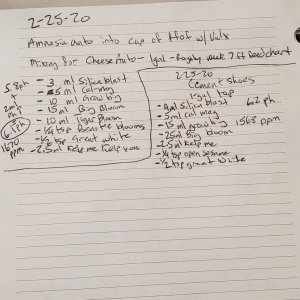 2-25-20
Amnesia auto into cup of Hof w/
Mixing for Cheese Auto - 1gal - Roughly week 7 FF feedchart
5.8ph
- 3 ml Silica blast
- 5 ml Cal-mag
- 10 ml Grow big
- 15 ml Big Bloom
- 10 ml Tiger Bloom
- 1/4 tsp Beastie blooms
- 1/4 tsp Great white
- 2.5ml Kelp me Kelp you
6.1 Ph
1670 ppm
2-25-20
Cement Shoes
1gal tap
- 4ml Silica blast
- 5ml cal mag
- 15 ml grow big
- 25ml Big bloom
- 25ml Kelp me
- 1/4 tsp open sesame
- 1/2 tsp great white
6.2 ph
1563 ppm